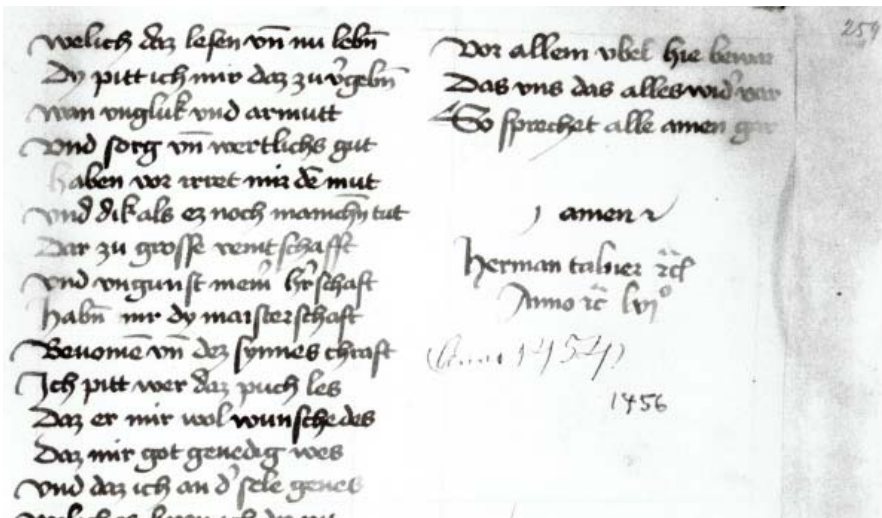 welich daz lesen vn̄ nu lebn̄
Dy pitt ich mir daz zu v'gebn̄
wan vngluk vnd armutt
vnd sorg vn̄ wertlichs gut
haben vor irret mir dē mut
vnd dik als ez noch manichn̄ tut
Dar zu grosse veintschafft
vnd vngunst meinr̄ hr̄schaft
habn̄ mir dy maisterschaft
Benomē vn̄ dez synnes chraft
Ich pitt wer daz puch les
Daz er mir wol wunsche des
Daz mir got genedig wes
vnd daz ich an d' sele genes
Vor allem vbel hie bewar
Das vns das alles wid'var
So sprechet alle amen gar
amen
herman talner
Anno lvi°
(Anno 1454)
1456
259